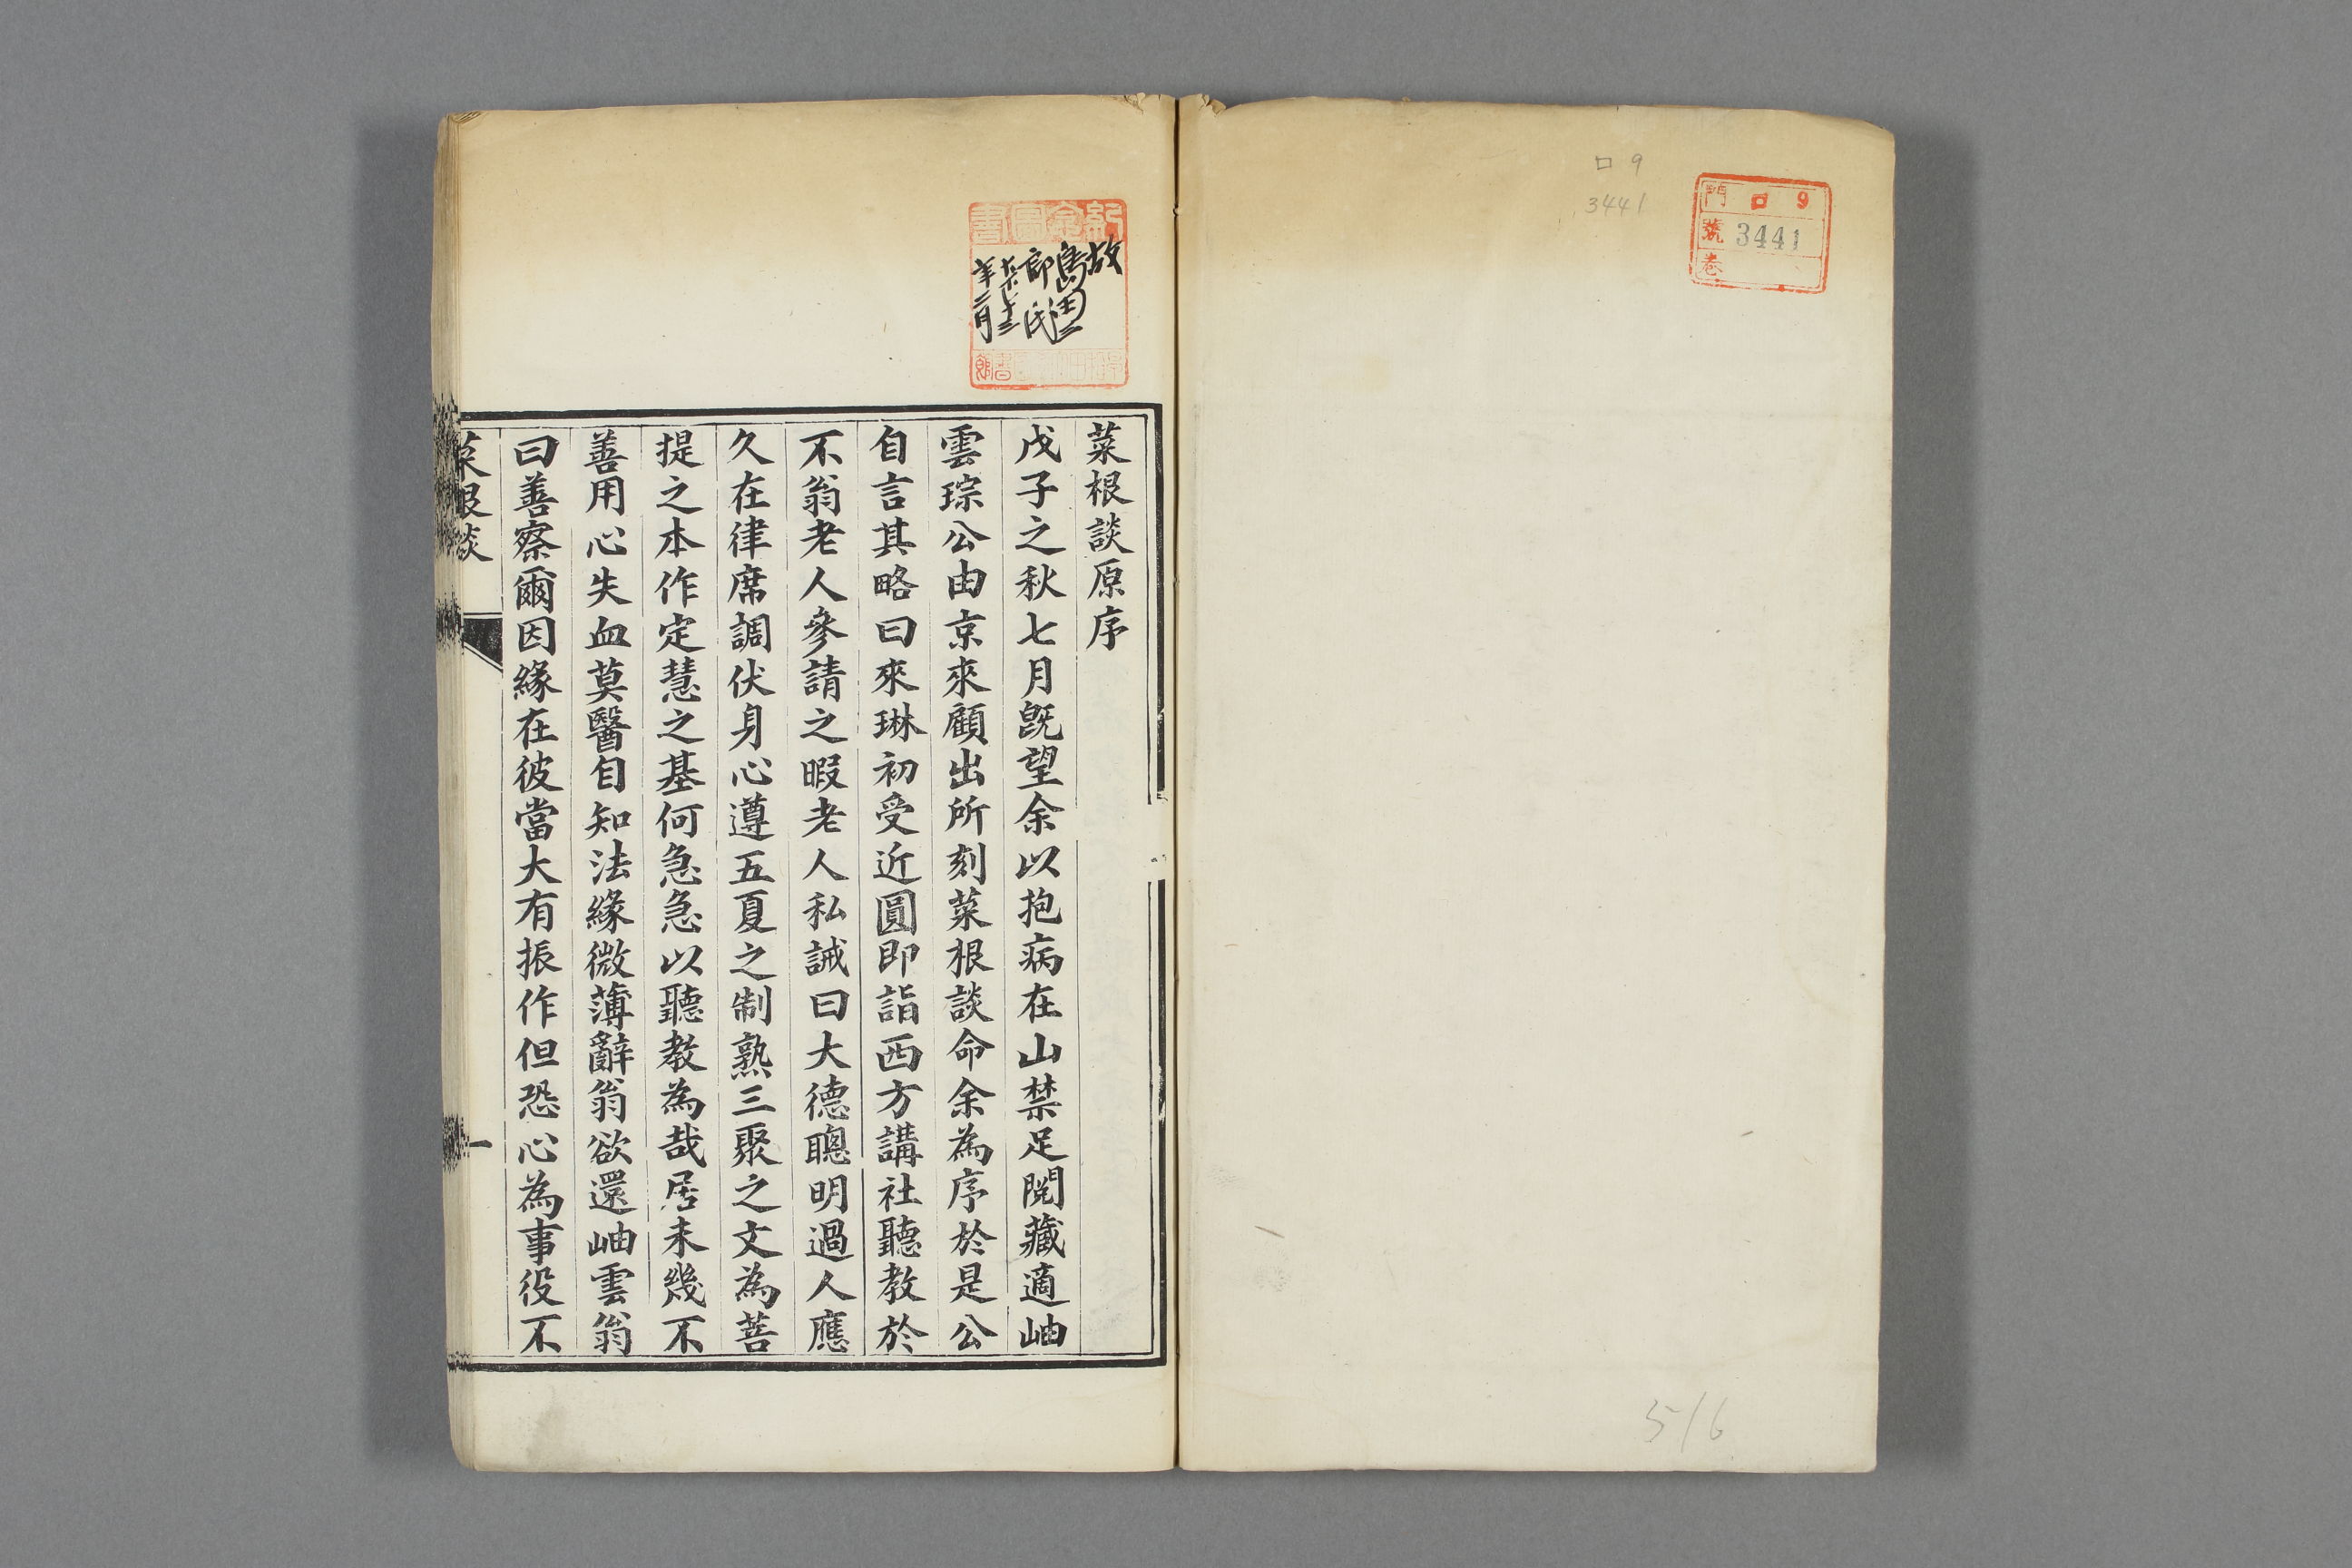 口 9
3441
門 口 9
號 3441
卷
516
紀念圖書
故
島田三
郎氏
大正十三
年二月
菜根談原序
戊子之秋七月旣望余以抱病在山禁足閱藏適岫
雲琮公由京來顧出所刻菜根談命余為序於是公
自言其略曰來琳初受近圓即詣西方講社聽教於
不翁老人參請之暇老人私誡曰大德聰明過人應
久在律席調伏身心遵五夏之制熟三聚之文為菩
提之本作定慧之基何急急以聽教為哉居未幾不
善用心失血莫醫自知法緣微薄辭翁欲還岫雲翁
曰善察爾因緣在彼當大有振作但恐心為事役不
菜根談
一